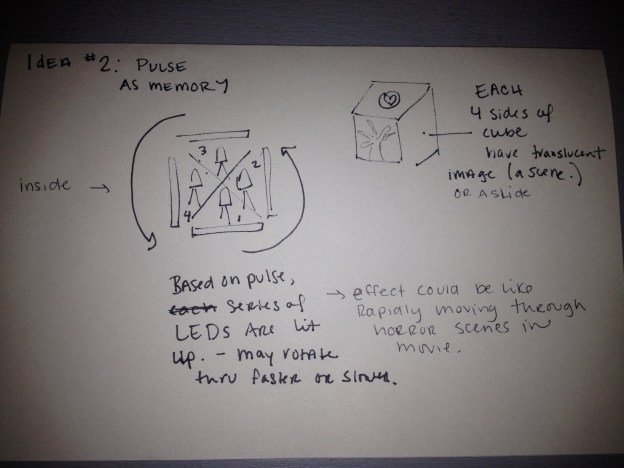 IDEA #2: PULSE
AS MEMORY
inside →
3
2
4
1
EACH
4 sides of
cube
have translucent
image (a scene.)
OR A SLIDE
Based on pulse,
each series of
LEDs ARE lit
up. - may rotate
thru faster or slower.
→ effect could be like
Rapidly moving through
horror scenes in
movie.